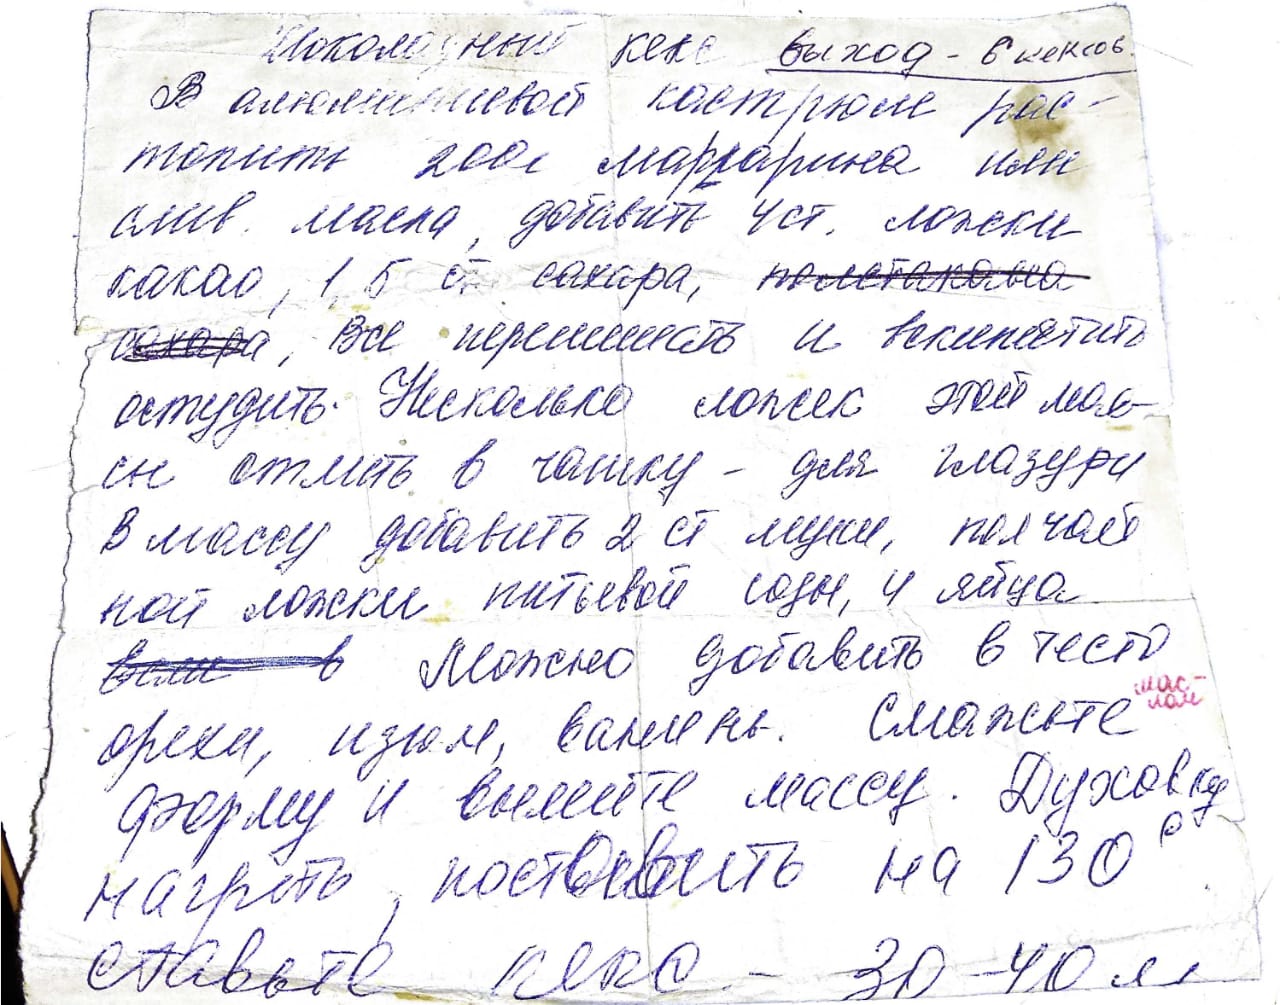 Шоколадный кекс выход - 6 кексов.
В алюминиевой кастрюле рас-
топить 200г маргарина или
слив. масла, добавить 4 ст. ложки
какао, 1,5 ст сахара, полстакана
сахара, Все перемешать и вскипятить
остудить. Несколько ложек этой мас-
сы отлить в чашку - для глазури
В массу добавить 2 ст муки, пол чай
ной ложки питьевой соды, 4 яйца
в Можно добавить в тесто
орехи, изюм, ванилнь. Смажьте мас-
лом
форму и вылейте массу. Духовку
нагреть, поставить на 130°
ставьте кекс - 30-40 м